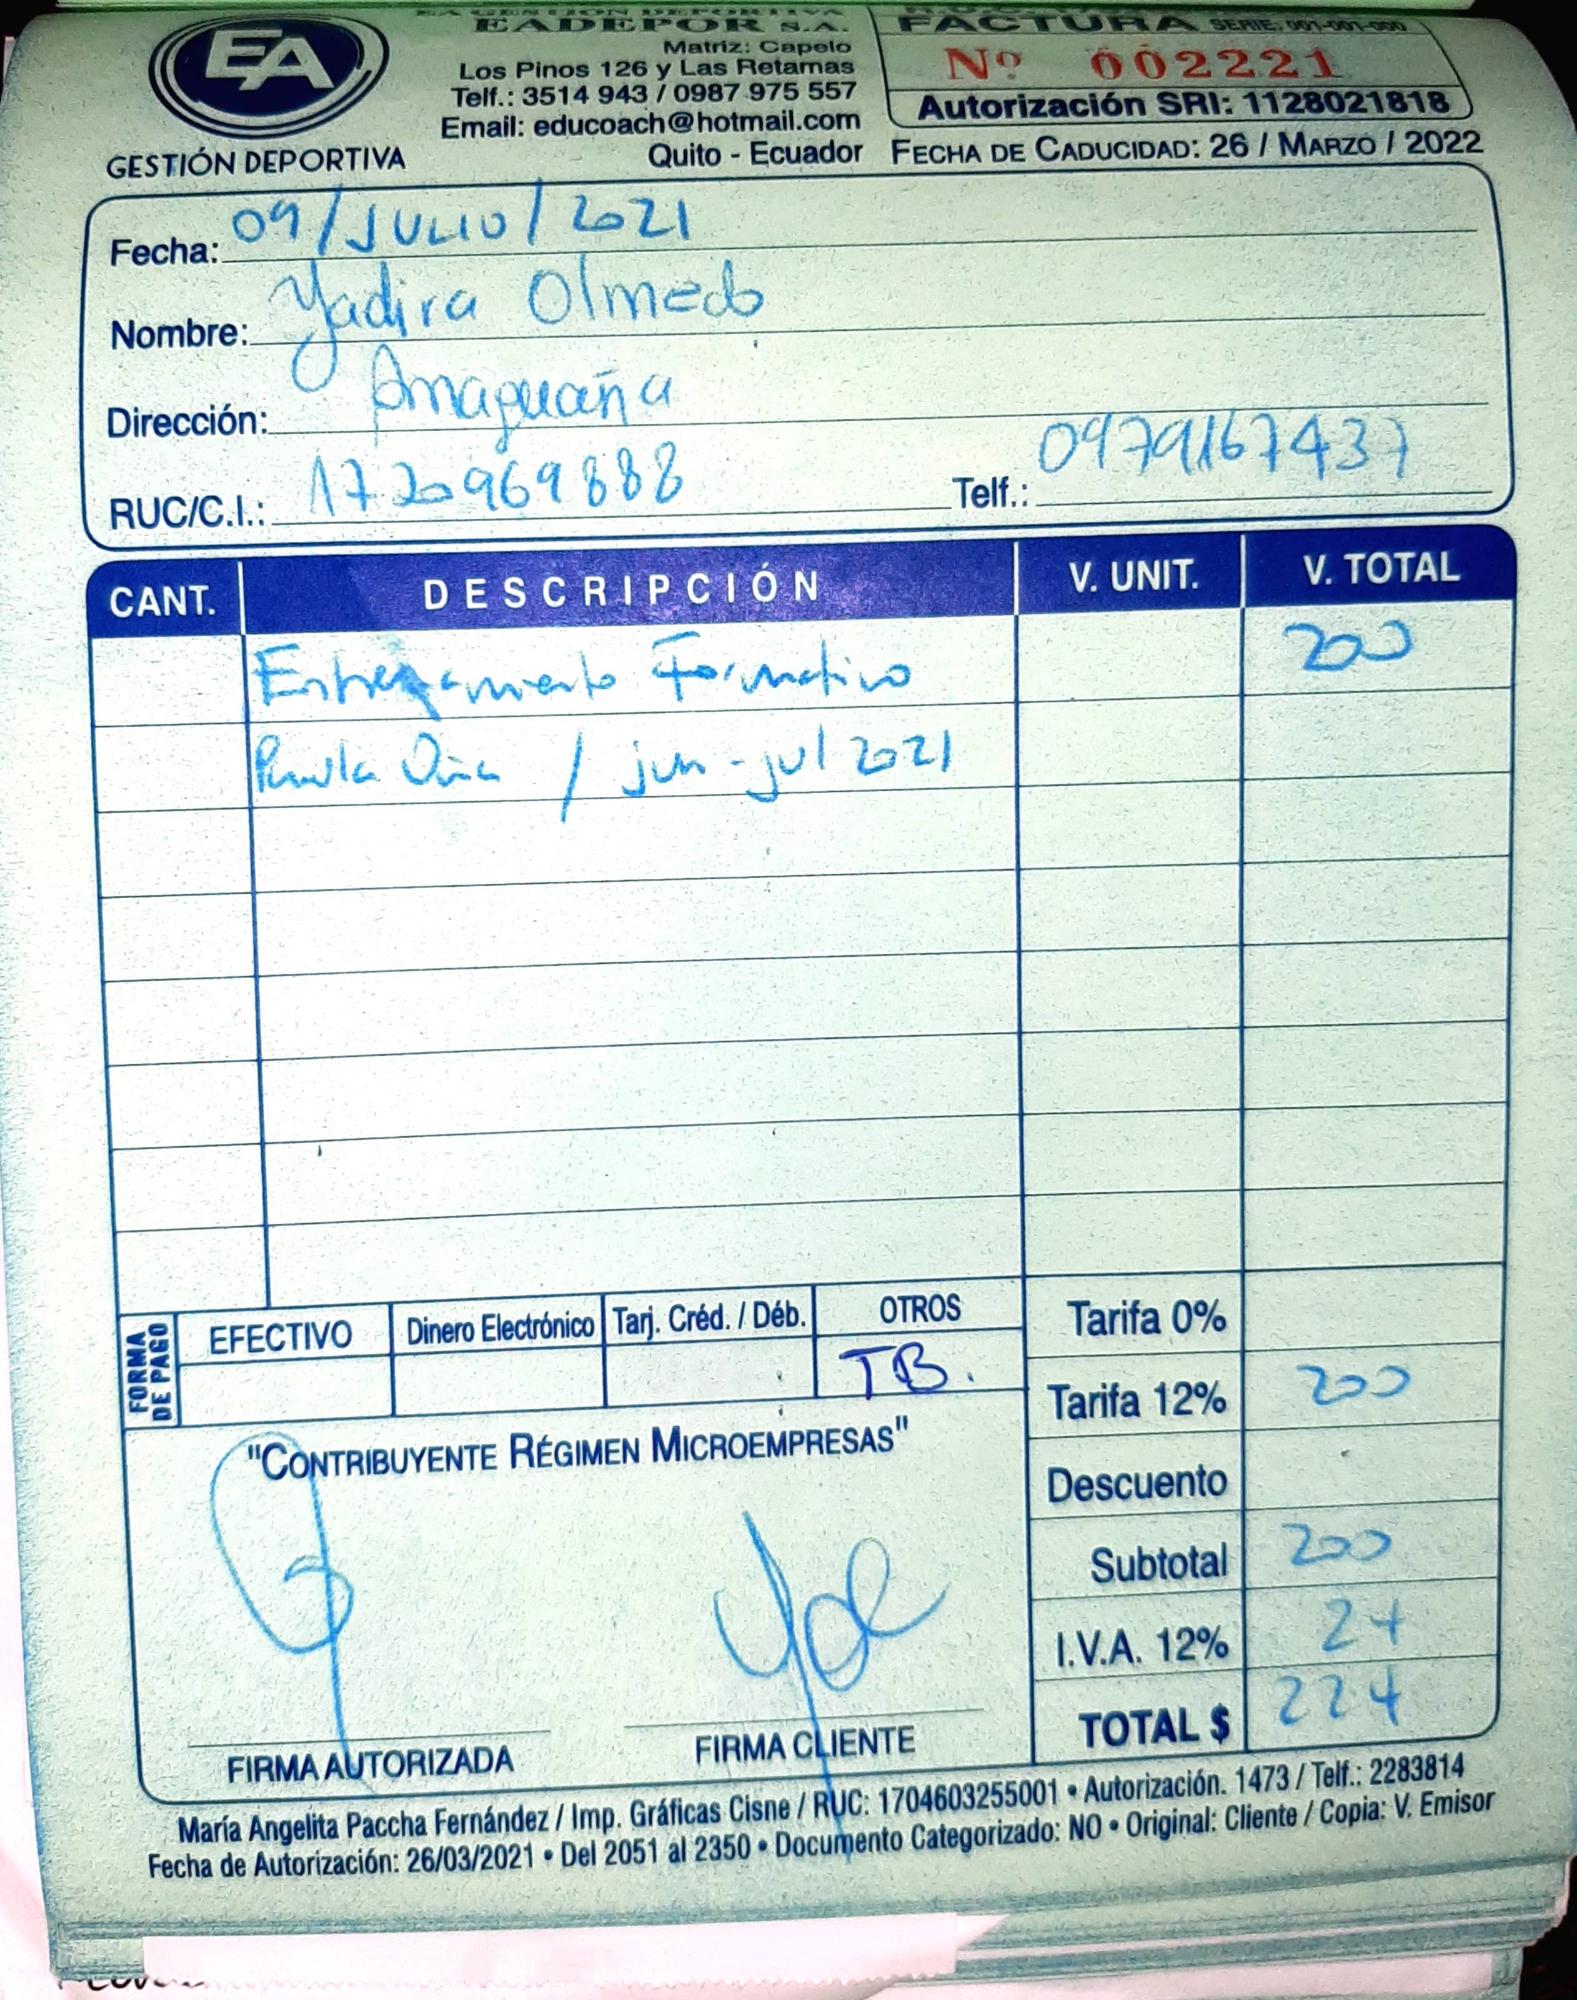 EA GESTIÓN DEPORTIVA
EADEPOR S.A.
Matriz: Capelo
Los Pinos 126 y Las Retamas
Telf.: 3514 943 / 0987 975 557
Email: educoach@hotmail.com
Quito - Ecuador
EA
GESTIÓN DEPORTIVA
FACTURA SERIE: 001-001-000
Nº 002221
Autorización SRI: 1128021818
FECHA DE CADUCIDAD: 26 / MARZO / 2022
Fecha: 09/JULIO/2021
Nombre: Yadira Olmedo
Dirección: Amaguaña
RUC/C.I.: 1720969888 Telf.: 0979167437
CANT. DESCRIPCIÓN V. UNIT. V. TOTAL
Entrenamiento Formativo 200
Paula / jun-jul 2021
FORMA DE PAGO
EFECTIVO Dinero Electrónico Tarj. Créd. / Déb. OTROS
TB.
Tarifa 0%
Tarifa 12% 200
Descuento
Subtotal 200
I.V.A. 12% 24
TOTAL $ 224
"CONTRIBUYENTE RÉGIMEN MICROEMPRESAS"
FIRMA AUTORIZADA FIRMA CLIENTE
María Angelita Paccha Fernández / Imp. Gráficas Cisne / RUC: 1704603255001 • Autorización. 1473 / Telf.: 2283814
Fecha de Autorización: 26/03/2021 • Del 2051 al 2350 • Documento Categorizado: NO • Original: Cliente / Copia: V. Emisor